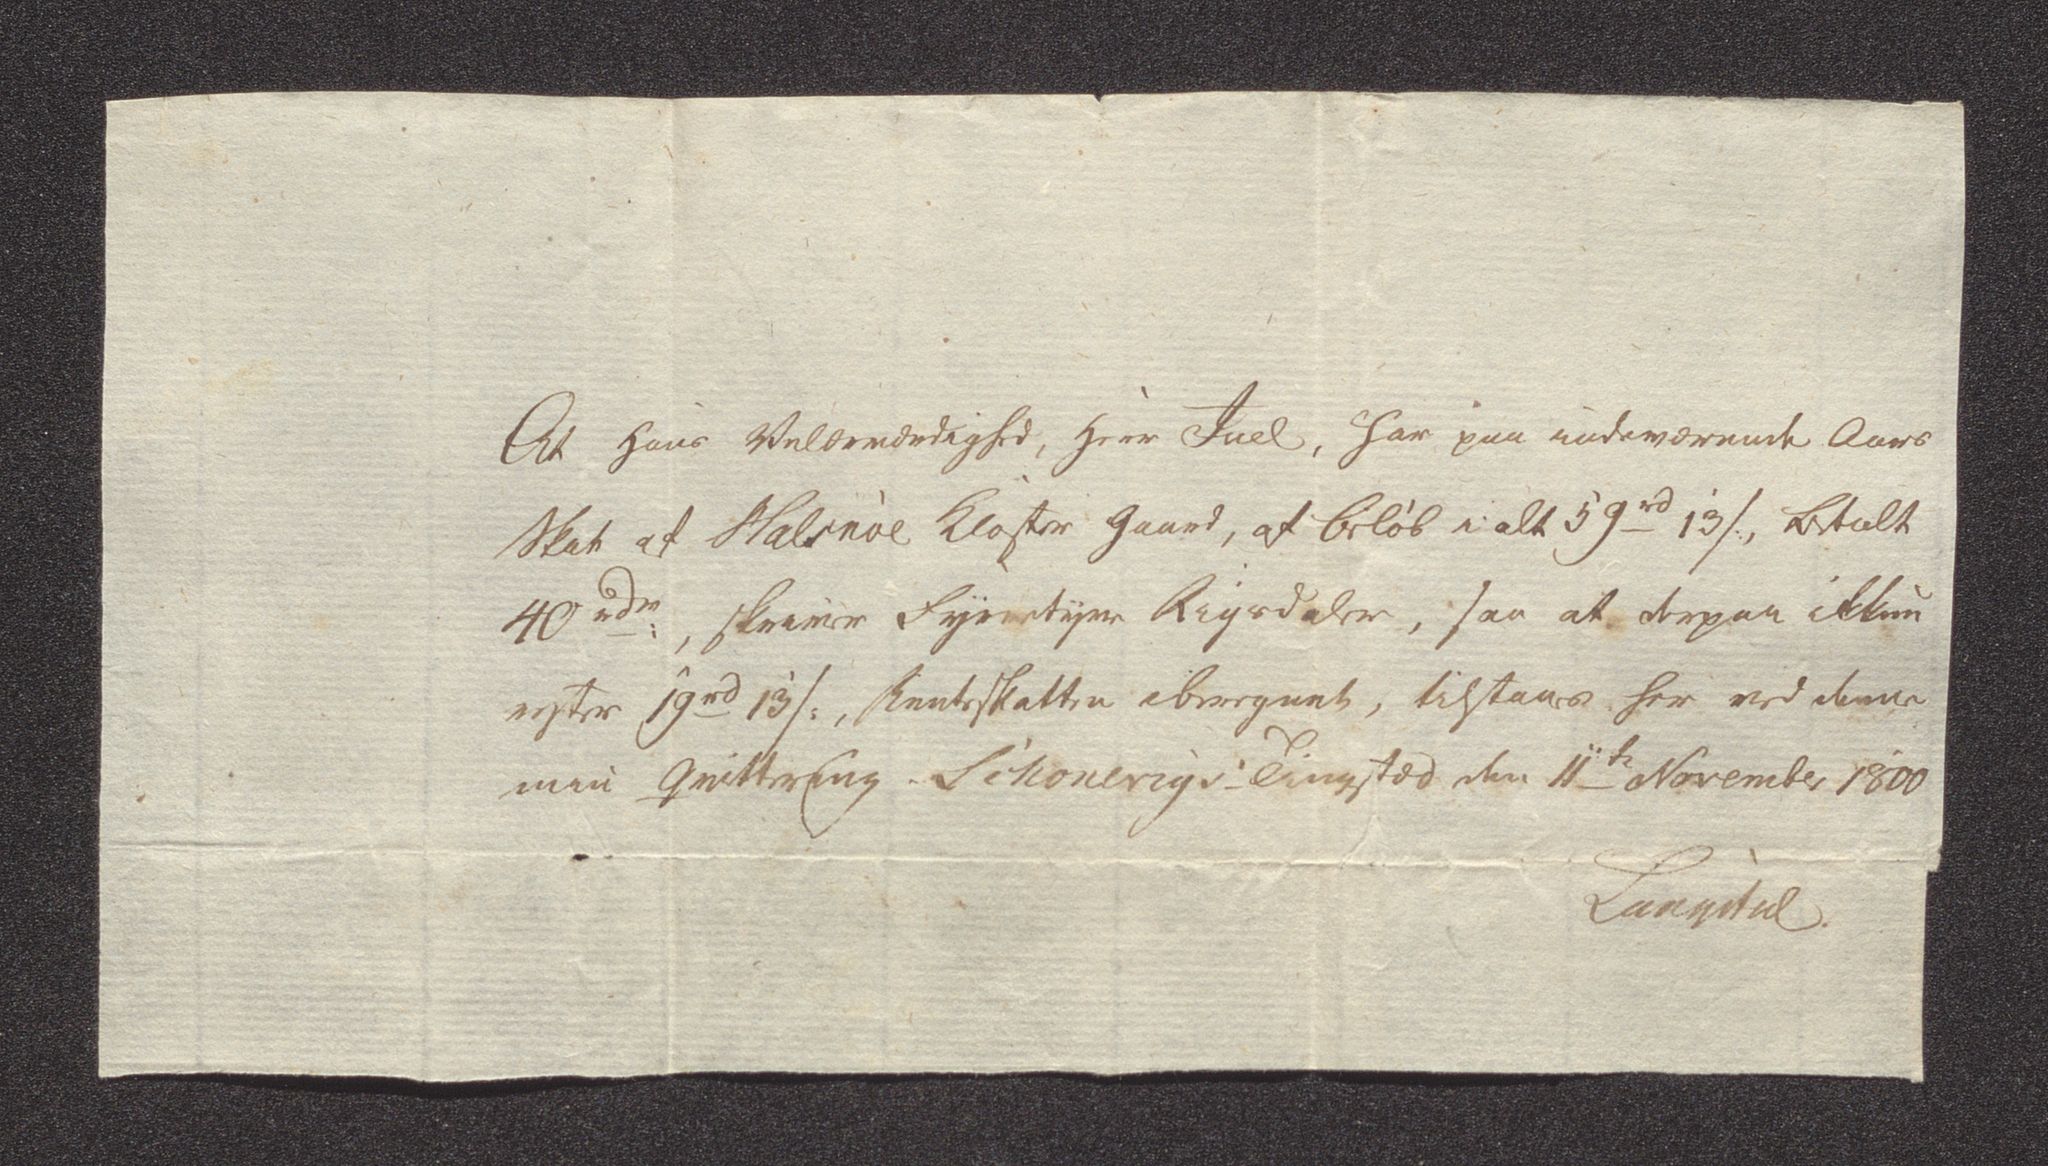 At Hans Velærværdighed, Herr Juel, har paa indeværende Aars
Skat af Halsnöe Kloster Gaard, af beløb i alt 59rd 13/:, betalt
40rdr:, skriver Fyrretyve Rigsdaler, saa at derpaa ikkun
rester 19rd 13/:, Renteskatten iberegnet, tilstaaes her ved denne
min Qvittering. Tingstæd den 11te November 1800